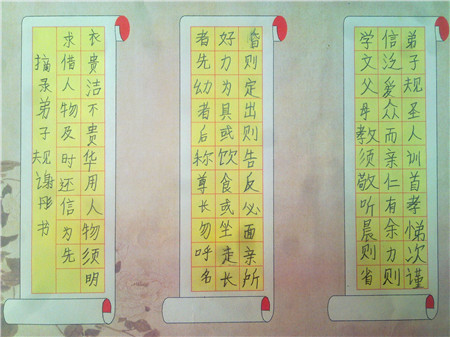 弟子规圣人训首孝悌次谨
信泛爱众而亲仁有余力则
学文父母教须敬听晨则省
昏则定出则告反必面亲所
好力为具或饮食或坐走长
者先幼者后称尊长勿呼名
衣贵洁不贵华用人物须明
求借人物及时还信为先
摘录弟子规谢彤书